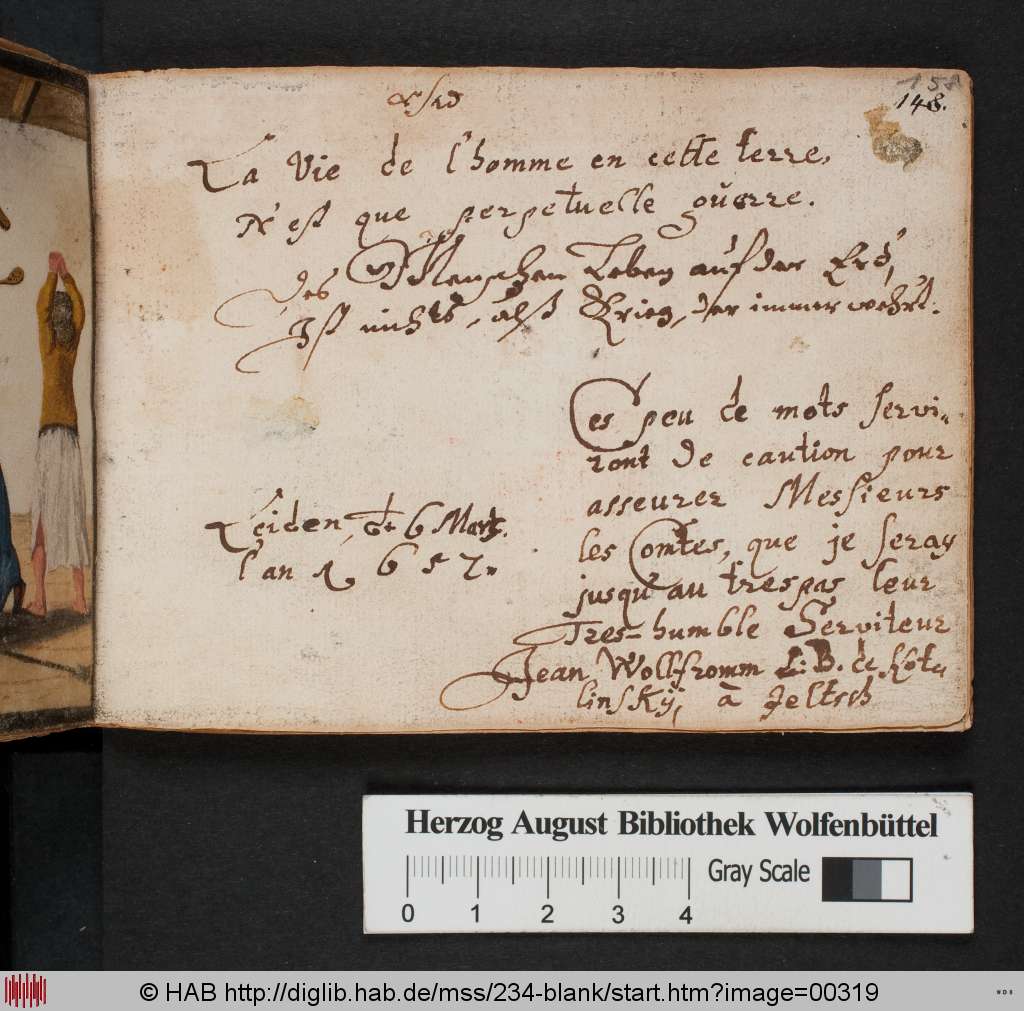 158
148.
La Vie de l'homme en cette terre,
N'est que perpetuelle guerre.
Des Menschen Leben auf der Erd,
Ist nichts, alß Krieg, der immer wehrt.
Ces peu de mots servi-
ront de caution pour
asseurer Messieurs
les Comtes, que je seray
jusqu'au trespas leur
Tres-humble Serviteur
Jean Wolffromm L. B. de Kot-
linskÿ, à Jeltsch
Leiden, 6 Mart.
l'an 1657.
Herzog August Bibliothek Wolfenbüttel
Gray Scale
0 1 2 3 4
© HAB http://diglib.hab.de/mss/234-blank/start.htm?image=00319